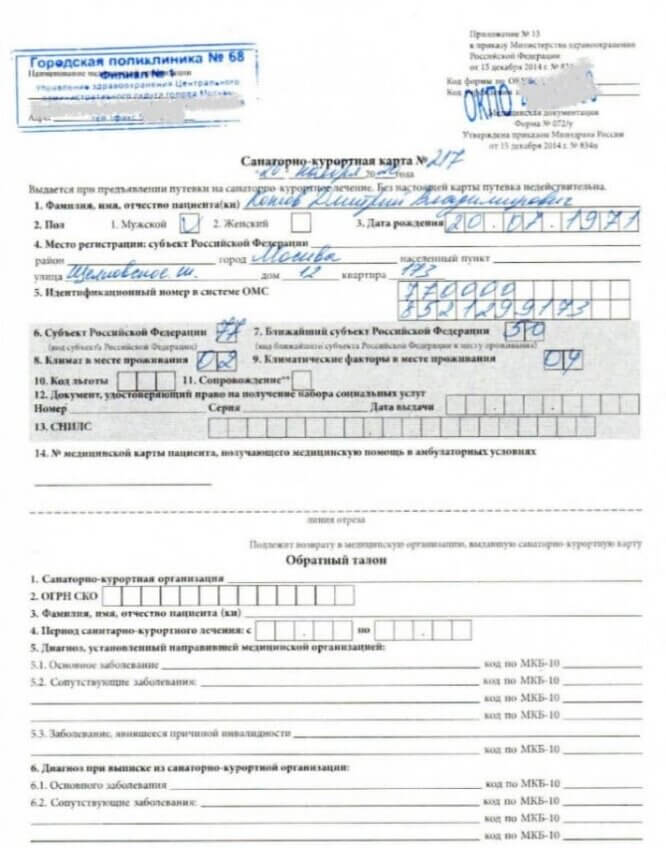 Городская поликлиника № 68
Филиал № 1
управление здравоохранения Центрального
административного округа города Москвы
тел./факс 5
Адрес
Приложение № 13
к приказу Министерства здравоохранения
Российской Федерации
от 15 декабря 2014 г. № 834н
Код формы по ОКУД
ОКПО
Медицинская документация
Форма № 072/у
Утверждена приказом Минздрава России
от 15 декабря 2014 г. № 834н
Санаторно-курортная карта № 217
20 ноября 20 года
Выдается при предъявлении путевки на санаторно-курортное лечение. Без настоящей карты путевка недействительна.
1. Фамилия, имя, отчество пациента(ки) Дмитрий Владимирович
2. Пол 1. Мужской V 2. Женский 3. Дата рождения 20.01.1971
4. Место регистрации: субъект Российской Федерации
район город Москва населенный пункт
улица Щелковское ш. дом 12 квартира 173
5. Идентификационный номер в системе ОМС 770000
8521299173
6. Субъект Российской Федерации 77 7. Ближайший субъект Российской Федерации 50
(код субъекта Российской Федерации) (код ближайшего субъекта Российской Федерации к месту проживания)
8. Климат в месте проживания 02 9. Климатические факторы в месте проживания 04
10. Код льготы 11. Сопровождение**
12. Документ, удостоверяющий право на получение набора социальных услуг
Номер Серия Дата выдачи
13. СНИЛС
14. № медицинской карты пациента, получающего медицинскую помощь в амбулаторных условиях
линия отреза
Подлежит возврату в медицинскую организацию, выдавшую санаторно-курортную карту
Обратный талон
1. Санаторно-курортная организация
2. ОГРН СКО
3. Фамилия, имя, отчество пациента (ки)
4. Период санитарно-курортного лечения: с по
5. Диагноз, установленный направившей медицинской организацией:
5.1. Основное заболевание код по МКБ-10
5.2. Сопутствующие заболевания: код по МКБ-10
код по МКБ-10
код по МКБ-10
5.3. Заболевание, явившееся причиной инвалидности код по МКБ-10
6. Диагноз при выписке из санаторно-курортной организации:
6.1. Основного заболевания код по МКБ-10
6.2. Сопутствующие заболевания: код по МКБ-10
код по МКБ-10
код по МКБ-10